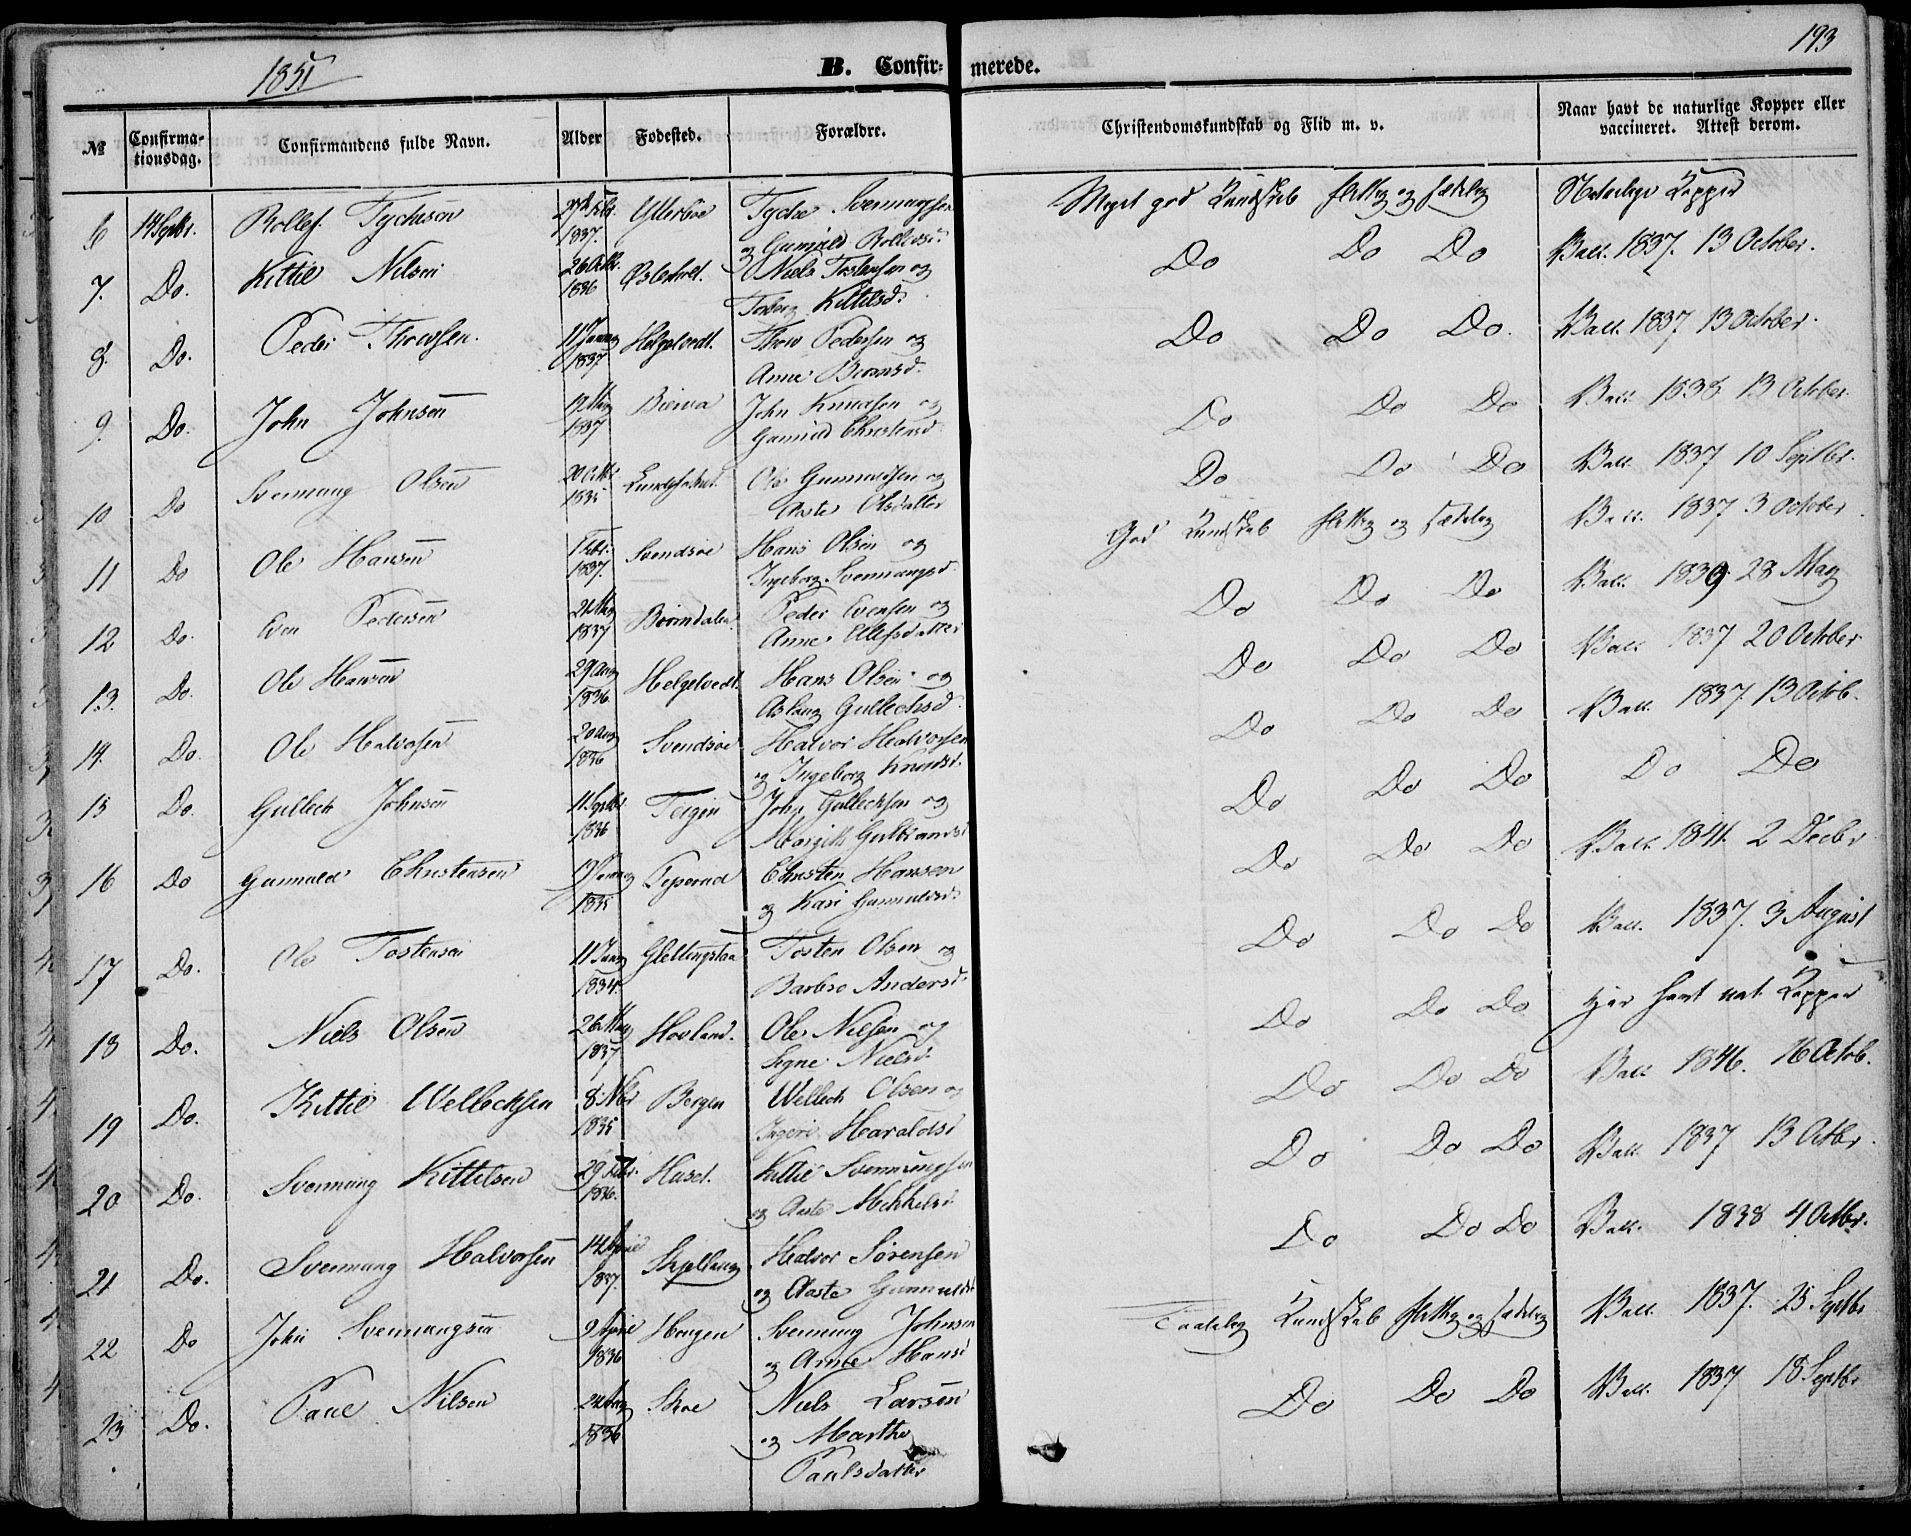 1851
B. Confir-merede.
193
№ Confirma-tionsdag. Confirmandens fulde Navn. Alder Fødested. Forældre. Christendomskundskab og Flid m. v. Naar havt de naturlige Kopper eller vaccineret. Attest derom.
6 14 Septbr. Rollef Tychesen 1837. Tyche Svennungsen Meget god Kundskab flittig og sædelig Naturlige Kopper
og Gunnild Rollevsd.
7. Do. Kittil Nilsen 26 Octbr. 1836 Østerholt. Niels Tostensen og Do Do Do Vacc. 1837. 13 October.
Torberg Kittilsd.
8. Do. Peder Thorsen 11 Januar 1837 Helgetvedt. Thor Pedersen og Do Do Do. Vacc. 1837 13 October.
Anne Biørnsd.
9. Do. John Johnsen 1837 Bierva John Knudsen og Do Do Do Vacc. 1838 13 October.
Gunnild Christensd.
10 Do Svennung Olsen 20 Octbr 1835 Ole Gunnuldsen og Do Do Do Vacc. 1837 10 Septbr.
Aaste Olsdatter
11 Do Ole Hansen 1 Febr. 1837. Svendsøe Hans Olsen og God Kundskab flittig og sædelig Vacc. 1837 3 October
Ingeborg Svennungsd.
12 Do. Even Pedersen 1837 Børindalen Peder Evensen og Do Do Do Vacc. 1839 28 May
Anne Ellefsdatter
13. Do. Ole Hansen 29 Aug 1836. Helgetvedt. Hans Olsen og Do Do Do Vacc. 1837 20 October
Aslaug Gullechsd.
14. Do. Ole Halvorsen 20 Aug 1836 Svendsøe Halvor Halvorsen Do Do Do Vacc. 1837. 13 Octob.
og Ingeborg Knudsd.
15 Do. Gullech Johnsen 11 Septbr 1836 Teigen John Gullechsen og Do Do Do Do Do
Margith Gulbransd
16 Do Gunnuld Christensen 1835 Christen Hansen Do Do Do Vacc. 1841. 2 Decbr
og Kari Gunnuldsd.
17 Do. Ole Tostensen 1834. Tosten Olsen og Do Do Do Vacc. 1837. 3 August
Barbro Andersd.
18 Do. Niels Olsen 26 May 1837 Hovland. Ole Nielsen og Do Do Do har havt nat. Kopper
Signe Nielsd.
19 Do. Kittil Wellechsen 8 Nbr 1835 Bergen Wellech Olsen og Do Do Do Vacc. 1846. 16 Octob.
Ingeri Haraldsd
20 Do. Svennung Kittilsen 29 Febr. 1836. Huset. Kittil Svennungsen Do Do Do Vacc. 1837 13 Octbr.
og Aaste Mikkelsd.
21 Do. Svennung Halvorsen 14 April 1837. Halvor Sørensen Do Do Do Vacc. 1838 4 Octbr.
og Aaste Gunnuldsd
22 Do John Svennungsen 9 April 1836 Haugen Svennung Johnsen Taalelig Kundskab flittig og sædelig Vacc. 1837. 25 Septbr
og Anne Hansd
23 Do. Paul Nilsen 24 Aug 1836 Skoe Niels Larsen Do Do Do Vacc. 1837 18 Septbr
og Marthe
Paulsdatter